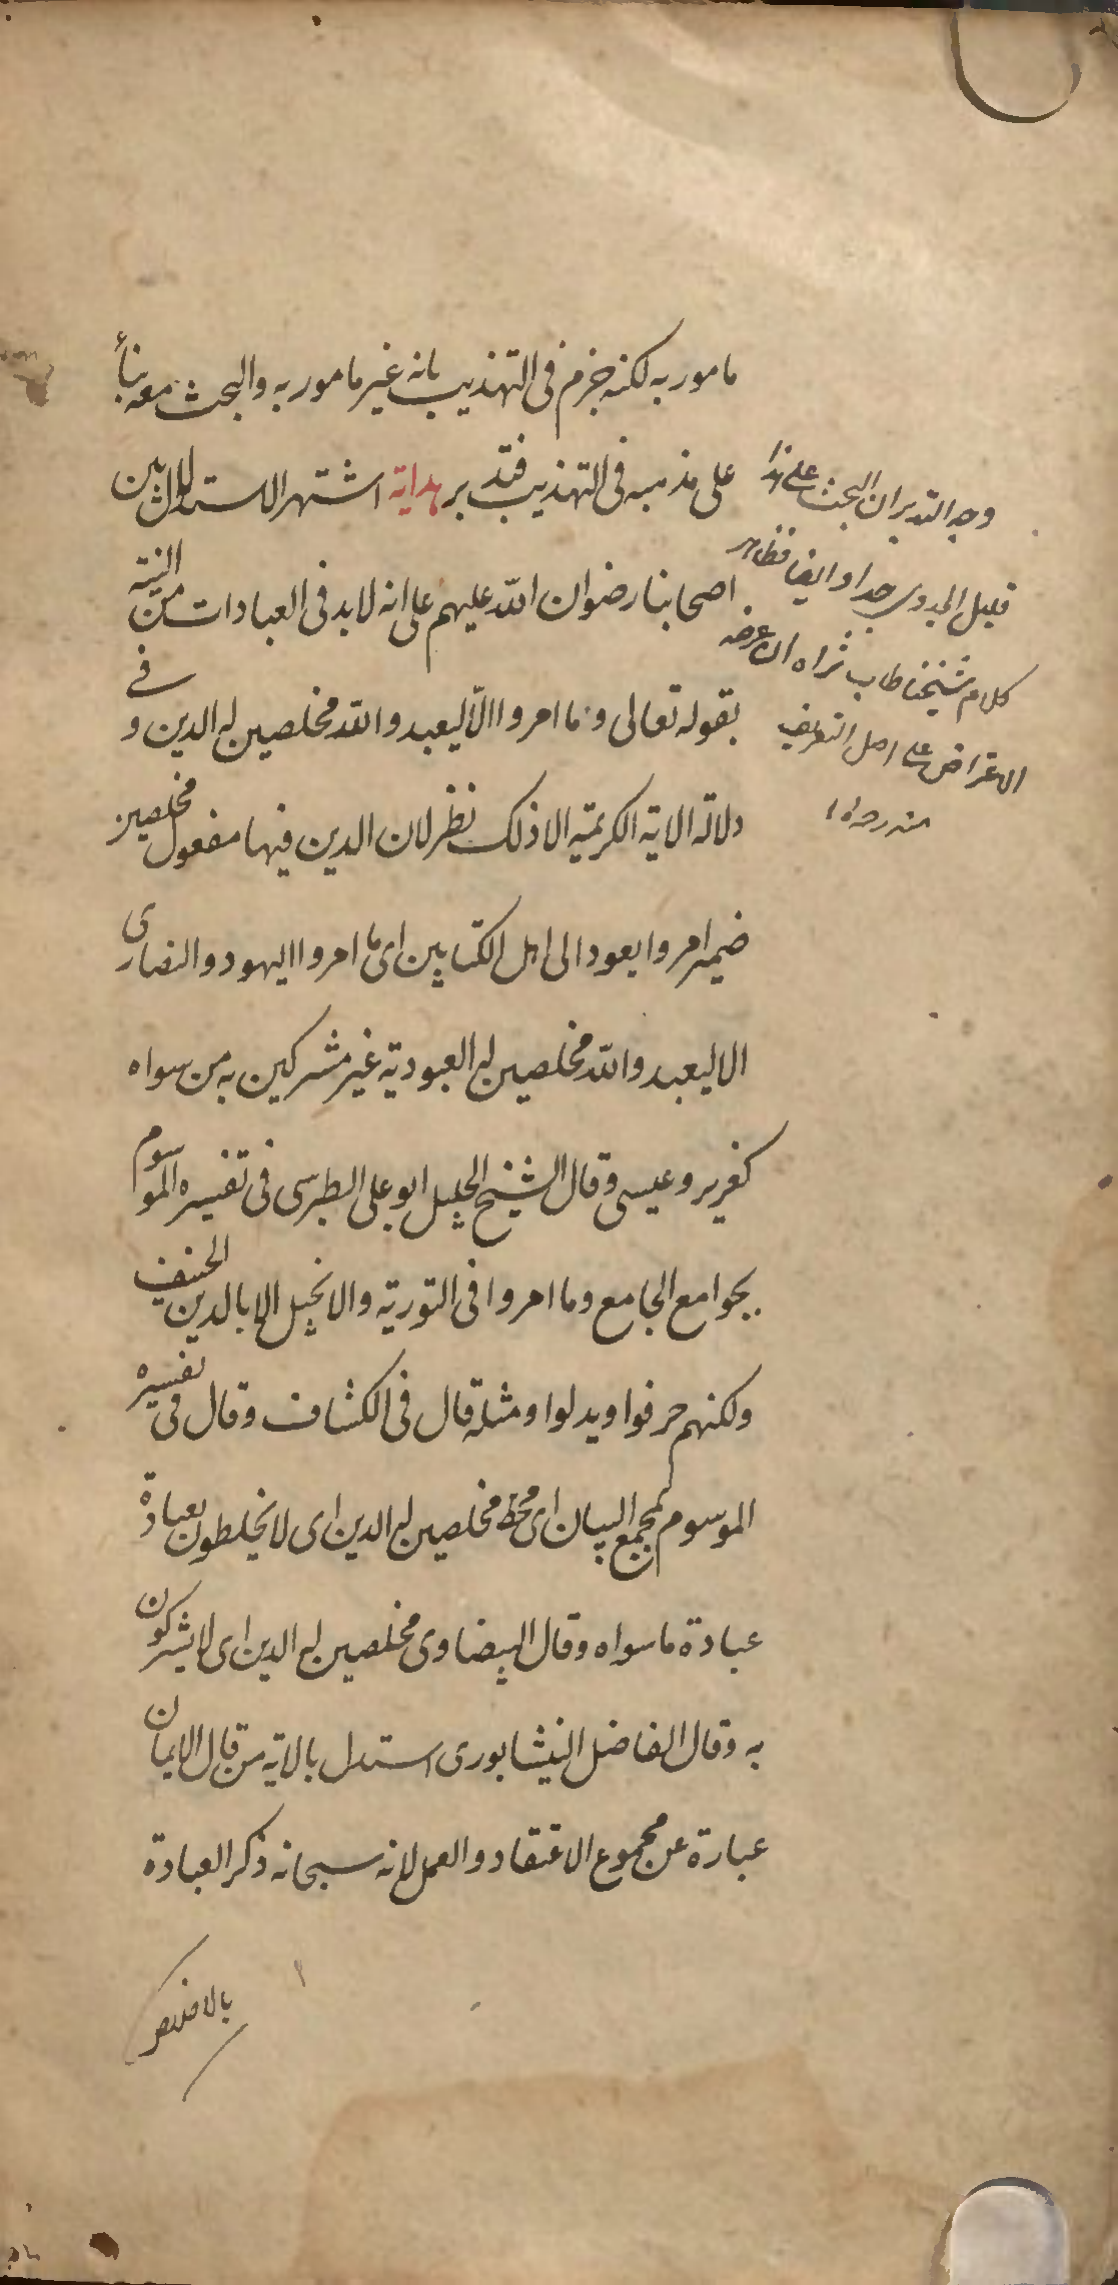 مامور به لكنه جزم فى التهذيب بانه غير مامور به والبحث معه بناأ
على مذهبه فى التهذيب فتدبر هداية اشتهر الاستدلال بين
اصحابنا رضوان الله عليهم على انه لا بد فى العبادات من النية
بقوله تعالى وما امروا الا ليعبدوا الله مخلصين له الدين و فى
دلالة الاية الكريمة الا ذلك نظر لان الدين فيها مفعول مخلصين
ضمير امروا يعود الى اهل الكتابين اى ما امروا اليهود والنصارى
الا ليعبدوا الله مخلصين له العبودية غير مشركين به من سواه
كعزير وعيسى وقال الشيخ الجليل ابو على الطبرسى فى تفسيره الموسوم
بجوامع الجامع وما امروا فى التورية والانجيل الا بالدين الحنيف
ولكنهم حرفوا وبدلوا ومثله قال فى الكشاف وقال فى تفسيره
الموسوم بمجمع البيان اى مخلصين له الدين اى لا يخلطون بعبادة
عبادة ما سواه وقال البيضاوى مخلصين له الدين اى لا يشركون
به وقال الفاضل النيشابورى استدل بالاية من قال الايمان
عبارة عن مجموع الاعتقاد والعمل لانه سبحانه ذكر العبادة
وجه التدبر ان البحث على هذا
قليل الجدوى جدا وايضا فظاهر
كلام شيخنا طاب ثراه ان غرضه
الاعتراض على اصل التعريف
منه ره